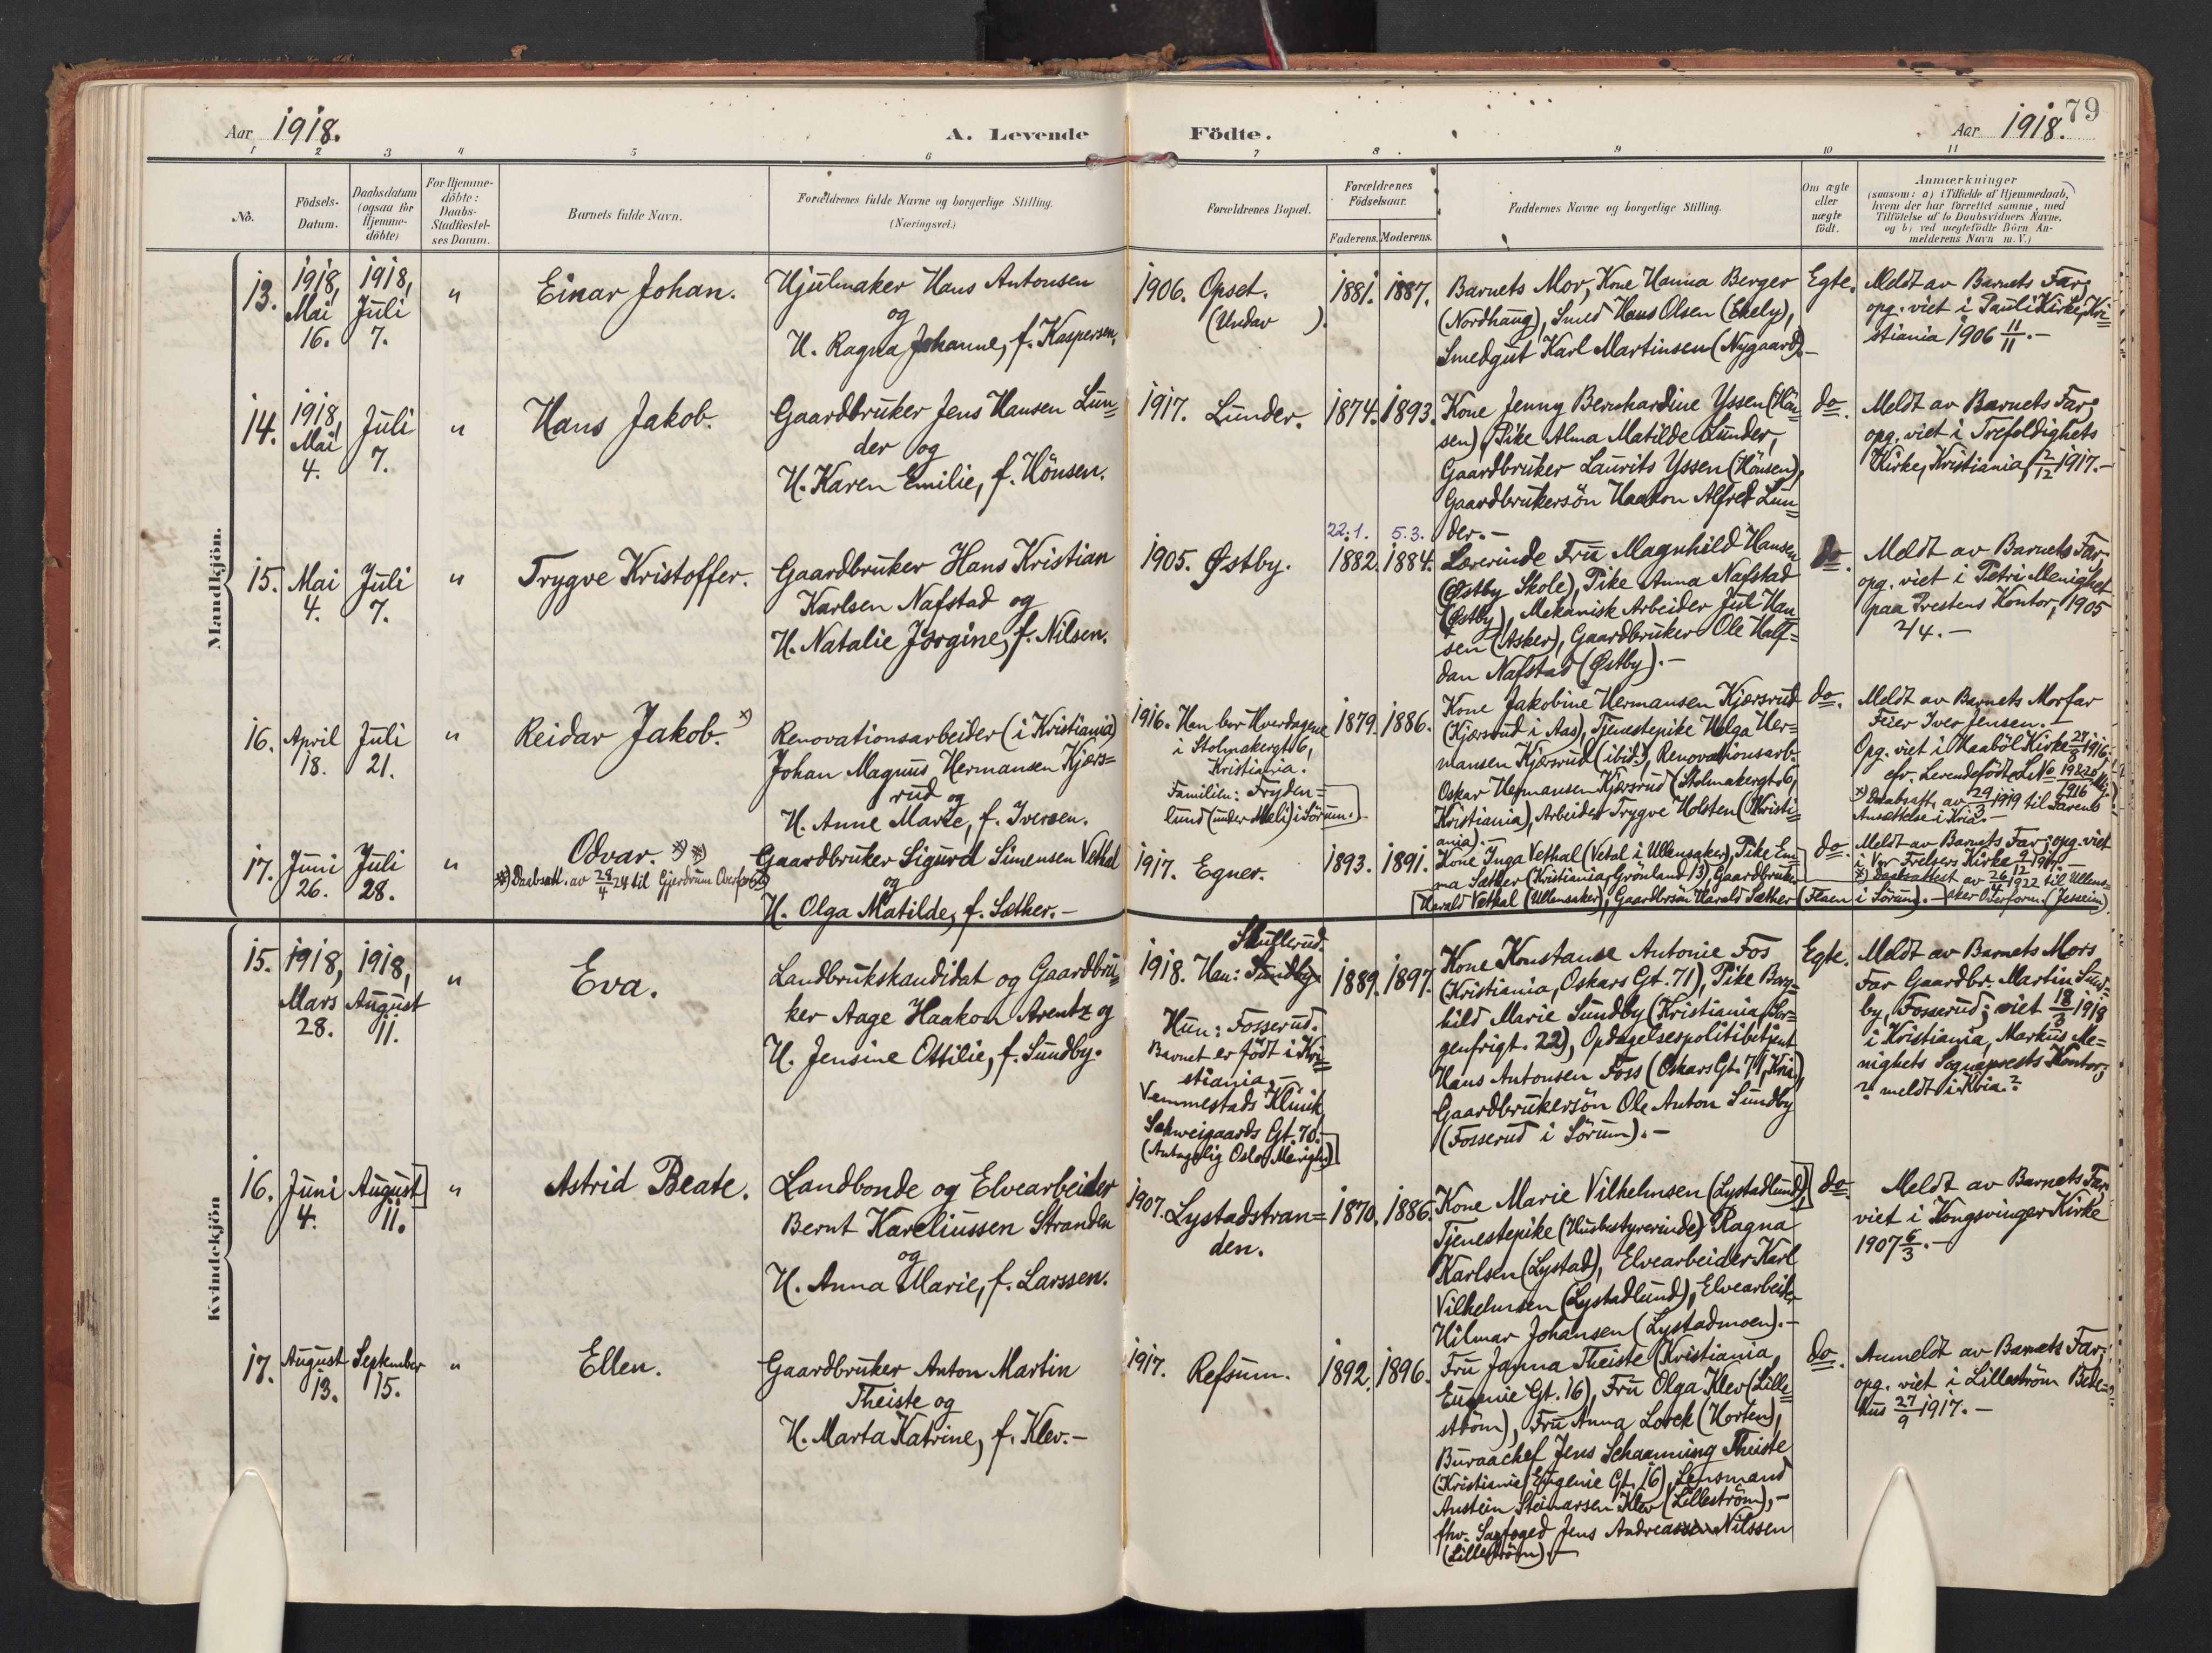 79
Aar 1918.
A. Levende Födte.
Aar 1918.
1 2 3 4 5 6 7 8 9 10 11
No.
Födsels-
Datum.
Daabsdatum
(ogsaa for
Hjemme-
döbte)
For Hjemme-
döbte:
Daabs-
Stadfæstel-
ses Datum.
Barnets fulde Navn.
Forældrenes fulde Navne og borgerlige Stilling.
(Næringsvei.)
Forældrenes Bopæl.
Forældrenes
Födselsaar.
Faderens. Moderens.
Faddernes Navne og borgerlige Stilling.
Om ægte
eller
uægte
födt.
Anmærkninger
(saasom: a) i Tilfælde af Hjemmedaab,
hvem der har forrettet samme, med
Tilföielse af to Daabsvidners Navne,
og b) ved uægtefödte Börn An-
melderens Navn m. V.)
Mandkjön.
13.
1918,
Mai
16.
1918,
Juli
7.
"
Einar Johan.
Hjulmaker Hans Antonsen
og
H. Ragna Johanne, f. Kaspersen.
1906. Opset.
(Undav ).
1881. 1887.
Barnets Mor, Kone Hanna Berger
(Nordhaug), Smed Hans Olsen (Ekely),
Smedgut Karl Martinsen (Nygaard).-
Egte.
Meldt av Barnets Far;
opg. viet i Pauli Kirke, Kri=
stiania 1906 11/11.-
14.
1918,
Mai
4.
Juli
7.
"
Hans Jakob.
Gaardbruker Jens Hansen Lun=
der og
H. Karen Emilie, f. Hönsen.
1917. Lunder.
1874. 1893.
Kone Jenny Bernhardine Yssen (Hön=
sen), Pike Alma Matilde Lunder,
Gaardbruker Laurits Yssen (Hönsen),
Gaardbrukersön Haakon Alfred Lun=
der.-
do.
Meldt av Barnets Far;
opg. viet i Trefoldighets
Kirke, Kristiania, 2/12 1917.-
15.
Mai
4.
Juli
7.
"
Trygve Kristoffer.
Gaardbruker Hans Kristian
Karlsen Nafstad og
H. Natalie Jörgine, f. Nilsen.
1905. Østby.
22.1. 5.3.
1882. 1884.
Lærerinde Fru Magnhild Hansen
(Østby Skole), Pike Anna Nafstad
(Østby), Mekanisk Arbeider Juli Han=
sen (Asker), Gaardbruker Ole Half=
dan Nafstad (Østby).-
do.
Meldt av Barnets Far.
opg. viet i Petri Menighet
paa Prestens Kontor, 1905
2/4.-
16.
April
18.
Juli
21.
"
Reidar Jakob. *)
Renovationsarbeider (i Kristiania)
Johan Magnus Hermansen Kjærs=
rud og
H. Anne Marie, f. Iversen.
1916. Han bor Hverdagene
i Stolmakergt 6,
Kristiania.
Familien: Fryden=
lund (under Meli) i Sörum.
1879. 1886.
Kone Jakobine Hermansen Kjærsrud
(Kjærsrud i Aas), Tjenestepike Helga Her=
mansen Kjærsrud (ibid.), Renovationsarb.
Oskar Hermansen Kjærsrud (Stolmakergt. 6,
Kristiania), Arbeider Trygve Holsten (Kristi=
ania).-
do.
Meldt av Barnets Morfar
Feier Iver Jensen.-
Opg. viet i Haaböl Kirke 1916
*) Daabsatt. av 29/3 1919 til Farens
Ansættelse i Kria.-
17.
Juni
26.
Juli
28.
"
Odvar. *) **)
**) Daabsatt. av 28/4 24 til Gjerdrum Overform.
Gaardbruker Sigurd Simensen Vethal
og
H. Olga Matilde, f. Sæther.-
1917. Egner.
1893. 1891.
Kone Inga Vethal (Vetal i Ullensaker), Pike Em=
ma Sæther (Kristiania, Grönland 13), Gaardbruker
Harald Vethal (Ullensaker), Gaardbrsön Harald Sæther (Flaen i Sörum).-
do.
Meldt av Barnets Far; opg. viet
i Vor Frelsers Kirke 9/12 1917.-
*) Daabsattest av 26/4 1922 til Ullens=
aker Overform. (Jessheim)
Kvindekjön
15.
1918,
Mars
28.
1918,
August
11.
"
Eva.
Landbrukskandidat og Gaardbru=
ker Aage Haakon Arentz og
H. Jensine Ottilie, f. Sundby.
Skullerud.
1918. Han: Sundby
Hun: Fosserud.
Barnet er födt i Kri=
stiania.-
Vemmestads Klinik,
Schweigaards Gt. 70.
(Antagelig Oslo Menigh.)
1889. 1897.
Kone Konstanse Antonie Fos
(Kristiania, Oskars Gt. 71), Pike Borg=
hild Marie Sundby (Kristiania, Sor=
genfrigt. 22), Opdagelsespolitibetjent
Hans Antonsen Foss (Oskars Gt. 71, Kria),
Gaardbrukersön Ole Anton Sundby
(Fosserud i Sörum).-
Egte.
Meldt av Barnets Mors
Far Gaardbr. Martin Sund=
by, Fosserud; viet 18/3 1918
i Kristiania, Markus Me=
nighets Sogneprests Kontor;
? meldt i Kria?
16.
Juni
4.
August
11.
"
Astrid Beate.
Landbonde og Elvearbeider
Bernt Kareliussen Stranden
og
H. Anna Marie, f. Larssen.
1907. Lystadstran=
den.
1870. 1886.
Kone Marie Vilhelmsen (Lystadlund),
Tjenestepike (Husbestyrerinde) Ragna
Karlsen (Lystad), Elvearbeider Karl
Vilhelmsen (Lystadlund), Elvearbeider
Hilmar Johansen (Lystadmoen).-
do.
Meldt av Barnets Far,
viet i Kongsvinger Kirke
1907 6/3.-
17.
August
13.
September
15.
"
Ellen.
Gaardbruker Anton Martin
Theiste og
H. Marta Katrine, f. Klev.-
1917. Refsum.
1892. 1896.
Fru Janna Theiste (Kristiania,
Eugenie Gt. 16), Fru Olga Klev (Lille=
ström), Fru Anna Lorck (Horten),
Buraachef Jens Schaanning Theiste
(Kristiania, Eugenie Gt. 16), Lensmand
Anstein Steinarsen Klev (Lilleström),-
fhv. Sagfoged Jens Andreassen Nilssen
(Lilleström).-
do.
Anmeldt av Barnets Far;
opg. viet i Lilleström Bede=
hus 27/9 1917.-